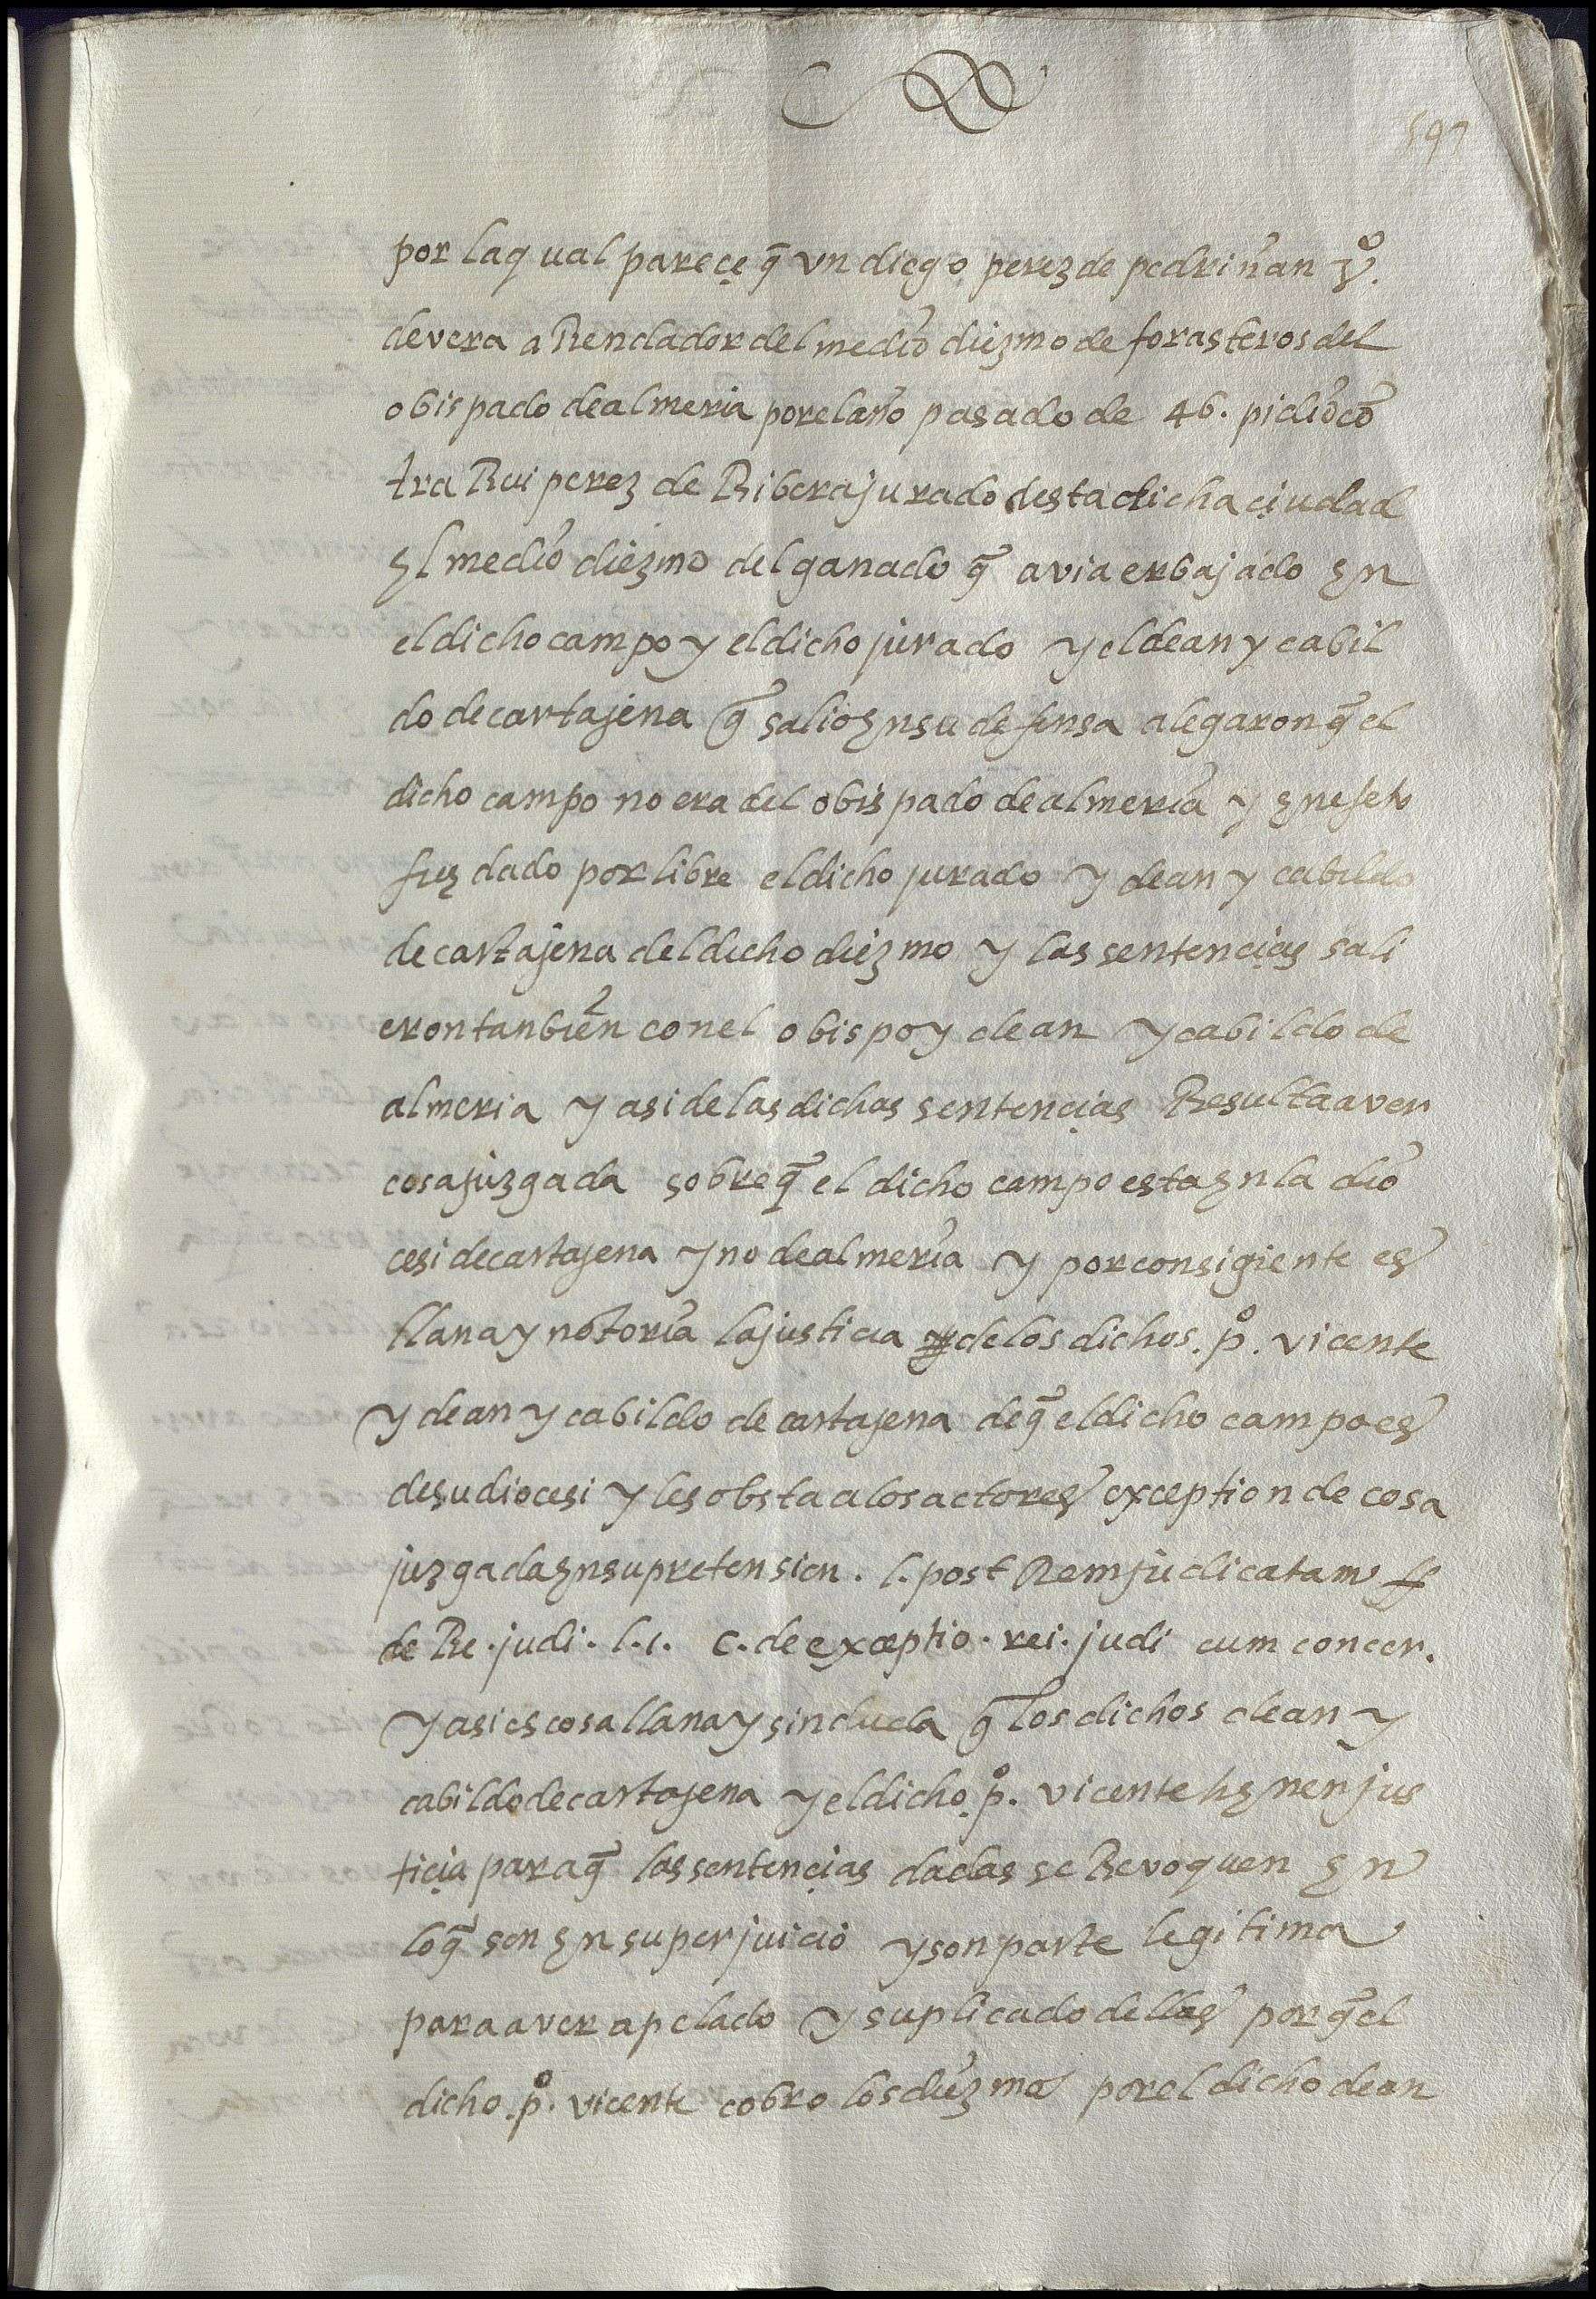 597
por la qual pareçe q̃ vn diego perez de pedriñan vº.
de vera aRendador del medio diezmo de forasteros del
obispado de almeria por el año pasado de 46. pidio cõ
tra Rui perez de Ribera jurado desta dicha çiudad
el medio diezmo del ganado q̃ avia erbajado en
el dicho campo y el dicho jurado y el dean y cabil
do de cartajena q̃ salio en su defensa alegaron q̃ el
dicho campo no era del obispado de almeria y en efeto
fue dado por libre el dicho jurado y dean y cabildo
de cartajena del dicho diezmo y las sentençias sali
eron tanbien con el obispo y dean y cabildo de
almeria y asi de las dichas sentençias Resulta aver
cosa juzgada sobre q̃ el dicho campo esta en la dio
cesi de cartajena y no de almeria y por consigiente es
llana y notoria la justicia de los dichos .pº. vicente
y dean y cabildo de cartajena de q̃ el dicho campo es
de su diocesi y les obsta a los actores exception de cosa
juzgada en su pretension . l. post Rem judicatam ff
de Re. judi. l. 1. C. de exceptio. rei. judi cum concor.
y asi es cosa llana y sin duda q̃ los dichos dean y
cabildo de cartajena y el dicho .pº. vicente tienen jus
tiçia para q̃ las sentençias dadas se Revoquen en
lo q̃ son en su perjuicio y son parte legitima
para aver apelado y suplicado dellas por q̃ el
dicho .pº. vicente cobro los diezmos por el dicho dean